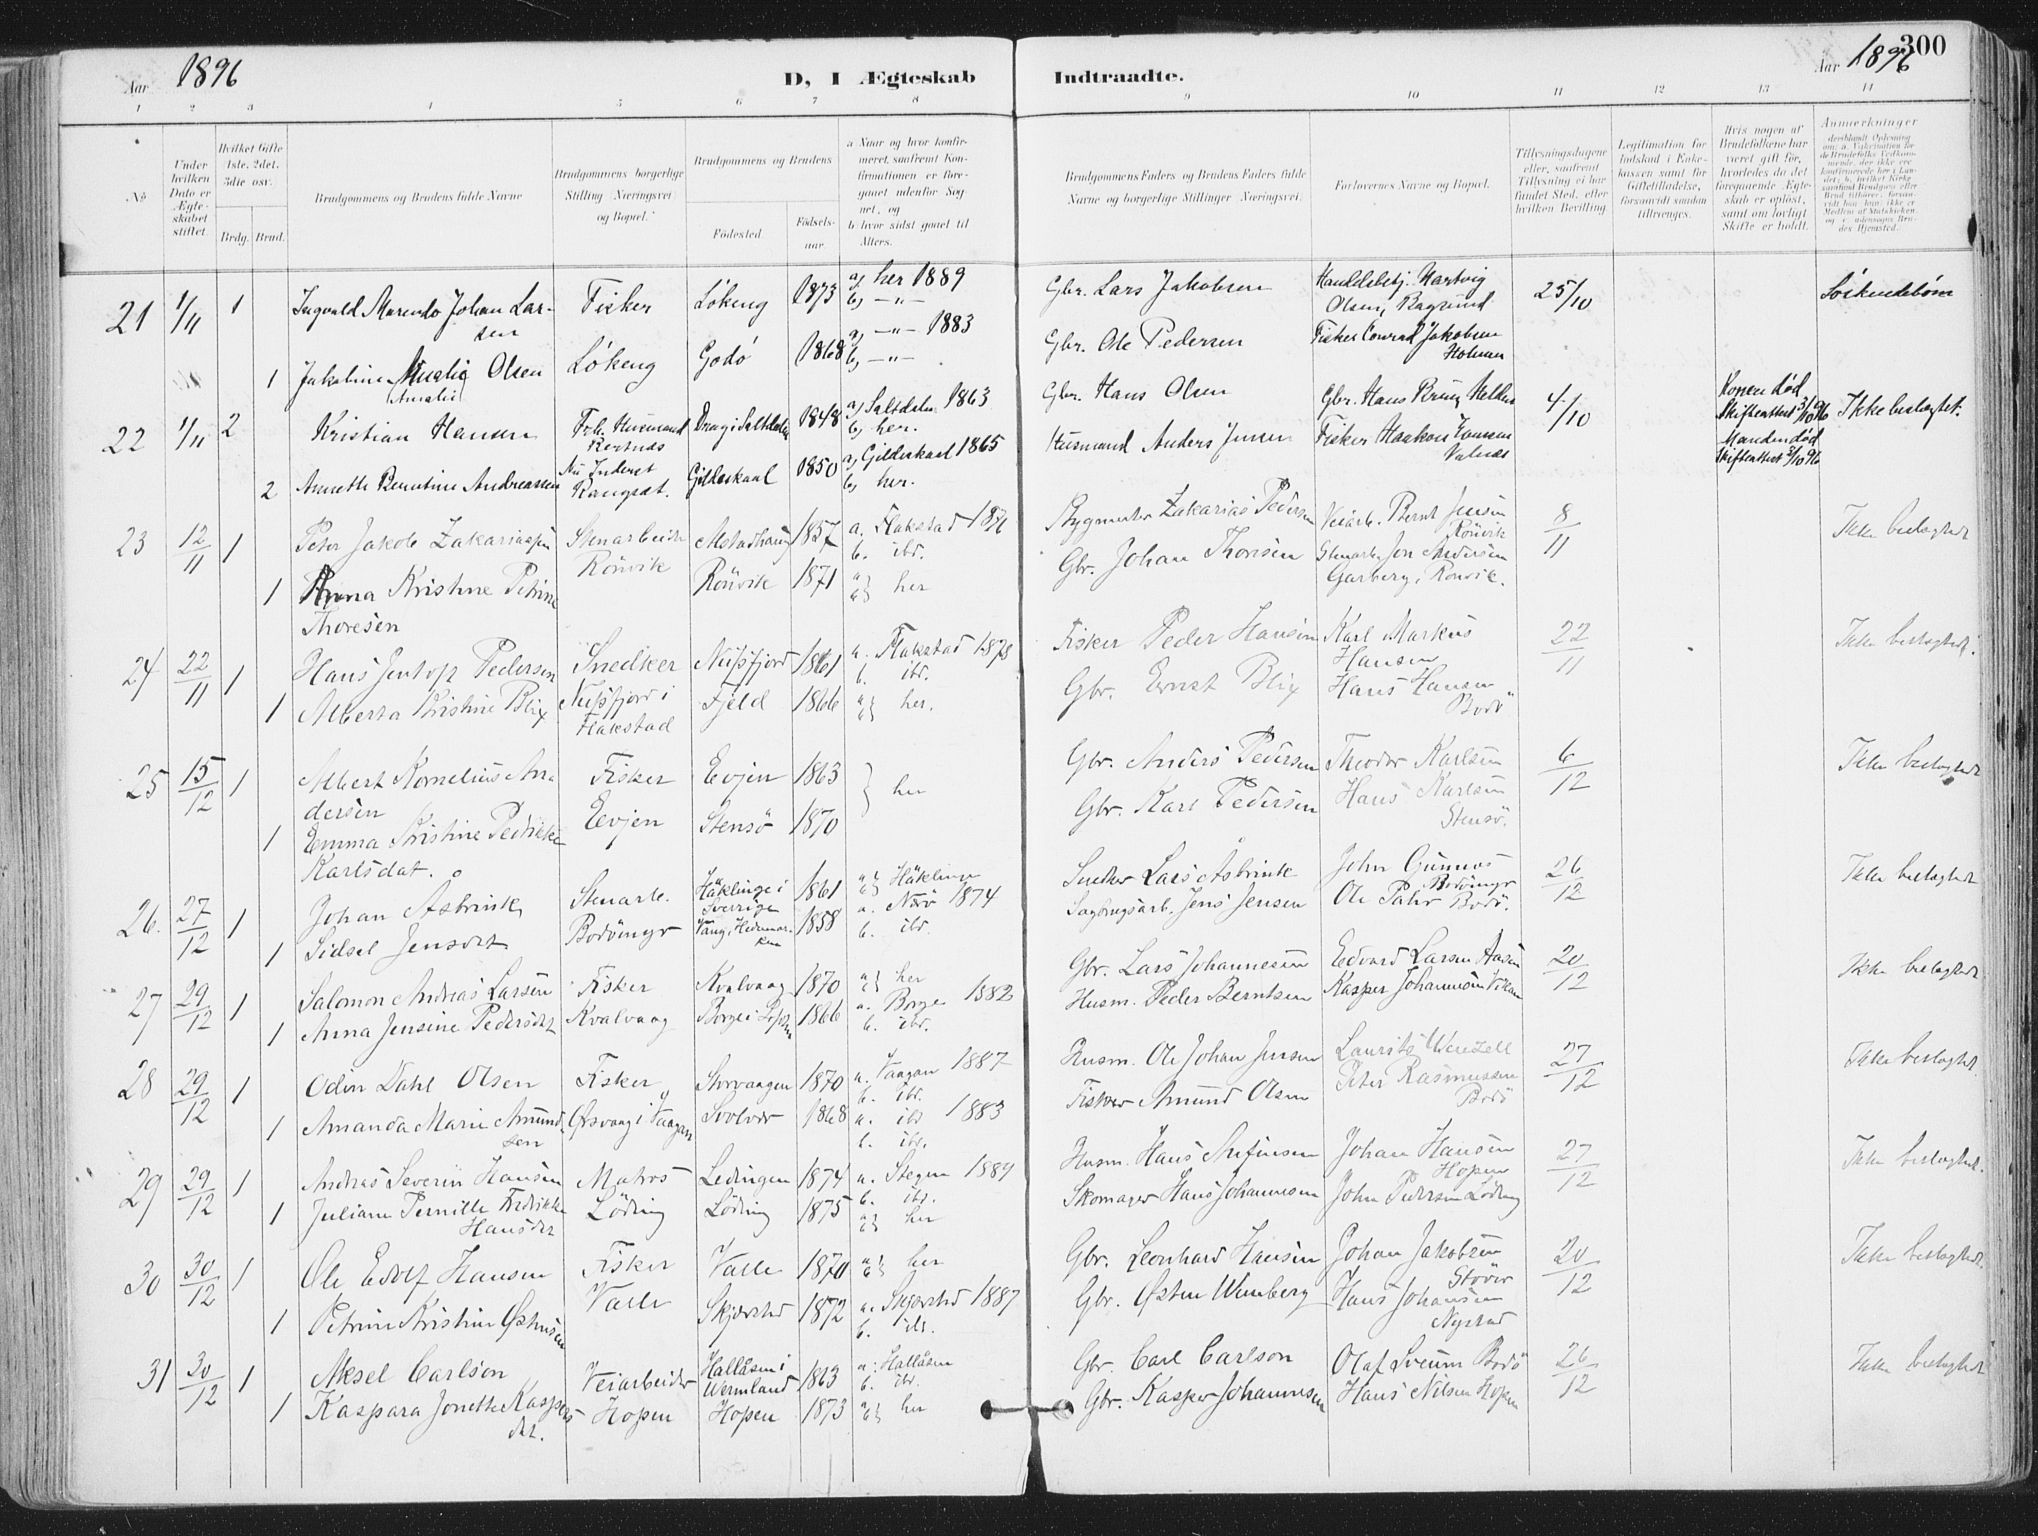 Aar 1896
D, I Ægteskab Indtraadte.
Aar 1896 300
1 2 3 4 5 6 7 8 9 10 11 12 13 14
No
Under hvilken Dato er Ægteskabet stiftet.
Hvilket Gifte 1ste. 2det. 3die osv.
Brdg. Brud.
Brudgommens og Brudens fulde Navne
Brudgommens borgerlige Stilling (Næringsvei) og Bopæl.
Brudgommens og Brudens
Födested.
Födsels-aar.
a Naar og hvor konfirmeret, saafremt Konfirmationen er foregaaet udenfor Sognet, og
b hvor sidst gaaet til Alters.
Brudgommens Faders og Brudens Faders fulde Navne og borgerlige Stillinger (Næringsvei.
Forlovernes Navne og Bopæl.
Tillysningsdagene eller, saafremt Tillysning ei har fundet Sted, efter hvilken Bevilling
Legitimation for Indskud i Enkekassen samt for Giftetilladelse, forsaavidt saadan tiltrænges.
Hvis nogen af Brudefolkene har været gift før, hvorledes da det foregaaende Ægteskab er oplöst, samt om lovligt Skifte er holdt.
Anmerkninger
21 1/11 1 Ingvald Marendo Johan Larsen Fisker Løkeng 1873 a, her 1889 b, —"— Gbr. Lars Jakobsen Handelsbetj. Hartvig Olsen, Bagsund 25/10 Søskendebørn
1 Jakobine Amalie Olsen Løkeng Godø 1868 a, —"— 1883 b, —"— Gbr. Ole Pedersen Fisker Conrad Jakobsen
Amalie
22 1/11 2 Kristian Hansen Frb. Husmand 1848 a, Saltdalen 1863 b, her. Gbr. Hans Olsen Gbr. Hans 4/10 Konen død Skifteattest 3/10 96 Ikke beslægtet.
2 Annette Berntine Andreassen Gildeskaal 1850 a, Gildeskaal 1865 b, her. Husmand Anders Jensen Fisker Haakon Valnæs Manden død Skifteattest 3/10 96
23 12/11 1 Peter Jakob Zakariassen Stenarbeider Alstadhaug 1857 a. Flakstad b. ibd. Zakarias Pedersen Veiarb. Bernt Jensen Rönvik 8/11 Ikke beslægtet
1 Anna Kristine Petrine Thoresen Rönvik Rönvik 1871 a} b} her Gbr. Johan Thoresen Stenarb. Jon Andersen Garberg, Rönvik.
24 22/11 1 Hans Jentoft Pedersen Snedker Nusfjord 1861 a. Flakstad 1878 b. ibd. Fisker Peder Hansen Karl Markus Hansen 22/11 Ikke beslægtet.
1 Alberta Kristine Blix Nusfjord i Flakstad Fjeld 1866 a} b} her. Gbr. Ernst Blix Hans Hansen Bodö
25 15/12 1 Albert Kornelius Andersen Fisker Evjen 1863 } her Gbr. Anders Pedersen Theodor Karlsen 6/12 Ikke beslægtet
1 Emma Kristine Pedrikke Karlsdat. Eevjen Stensö 1870 Gbr. Karl Pedersen Hans Karlsen Stensö.
26. 27/12 1 Johan Åsbrink Stenarb. Häklinge i Sverrige 1861 a} b} Häklinge Lars Åsbrink John Gunnus Bodömyr 26/12 Ikke beslægtet
1 Sidsel Jensdt Bodömyr Vang, Hedemarken 1858 a. 1874 b. ibd. Sagbrugsarb. Jens Jensen Ole Bodö.
27 29/12 1 Salomon Andreas Larsen Fisker Kvalvaag 1870 a} b} her Gbr. Lars Johannesen Edvard Larsen Aasen 20/12 Ikke beslægtet
1 Anna Jensine Pedersdt Kvalvaag Borge i Lofoten 1866 a. Borge 1882 b. ibd. Husm. Peder Berntsen Kasper Johannesen Vikan
28 29/12 1 Odin Dahl Olsen Fisker Storvaagen 1870 a. Vaagan 1887 b. ibd. Husm. Ole Johan Jensen Laurits Wenzell 27/12 Ikke beslægtet.
1 Amanda Marie Amundsen Ørsvaag i Vaagan Svolvær 1868 a. ibd 1883 b. ibd. Fisker Amund Olsen Peter Rasmussen Bodö
29 29/12 1 Andreas Severin Hansen Matros Ledingen 1874 a. Stegen 1889 b. ibd. Husm. Hans Johan Hansen Hopen 27/12 Ikke beslægtet.
1 Juliane Pernille Fredrikke Hansdtr Löding Löding 1875 a} b} her Skomager Hans Johannesen John Pedersen Löding
30 30/12 1 Ole Edolf Hansen Fisker Valle 1870 a} b} her Gbr. Leonhard Hansen Johan Jakobsen Stöver 20/12 Ikke beslægtet.
1 Petrine Kristine Østensen Valle Skjerstad 1872 a. Skjerstad 1887 b. ibd. Gbr. Østen Wenberg Hans Johansen Nystad
31 30/12 1 Aksel Carlson Veiarbeider Hallåsen i Wermland 1863 a. Hallåsen b. ibd. Gbr. Carl Carlson Olaf Sveum Bodö 26/12 Ikke beslægtet
1 Kaspara Jonette Kaspersdat. Hopen Hopen 1873 a} b} her Gbr. Kasper Johannesen Hans Nilsen Hopen